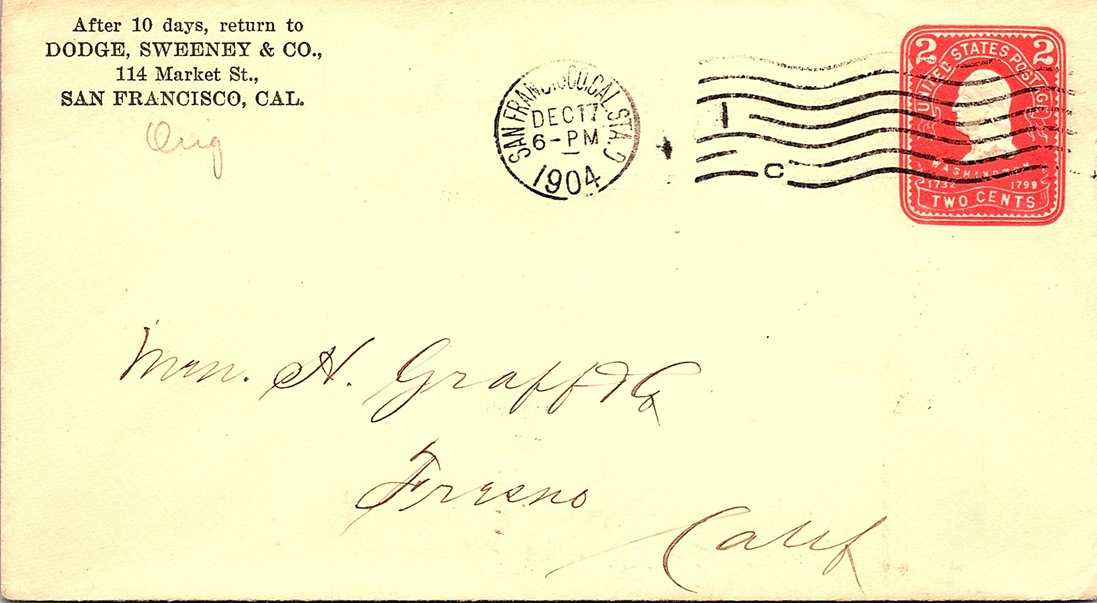 After 10 days, return to
DODGE, SWEENEY & CO.,
114 Market St.,
SAN FRANCISCO, CAL.
Orig
SAN FRANCISCO, CAL. STA. D
DEC 17
6-PM
1904
1
C
2 2
UNITED STATES POSTAGE
WASHINGTON
1732 1799
TWO CENTS
Mrn. H. Graff & Co
Fresno
Calif